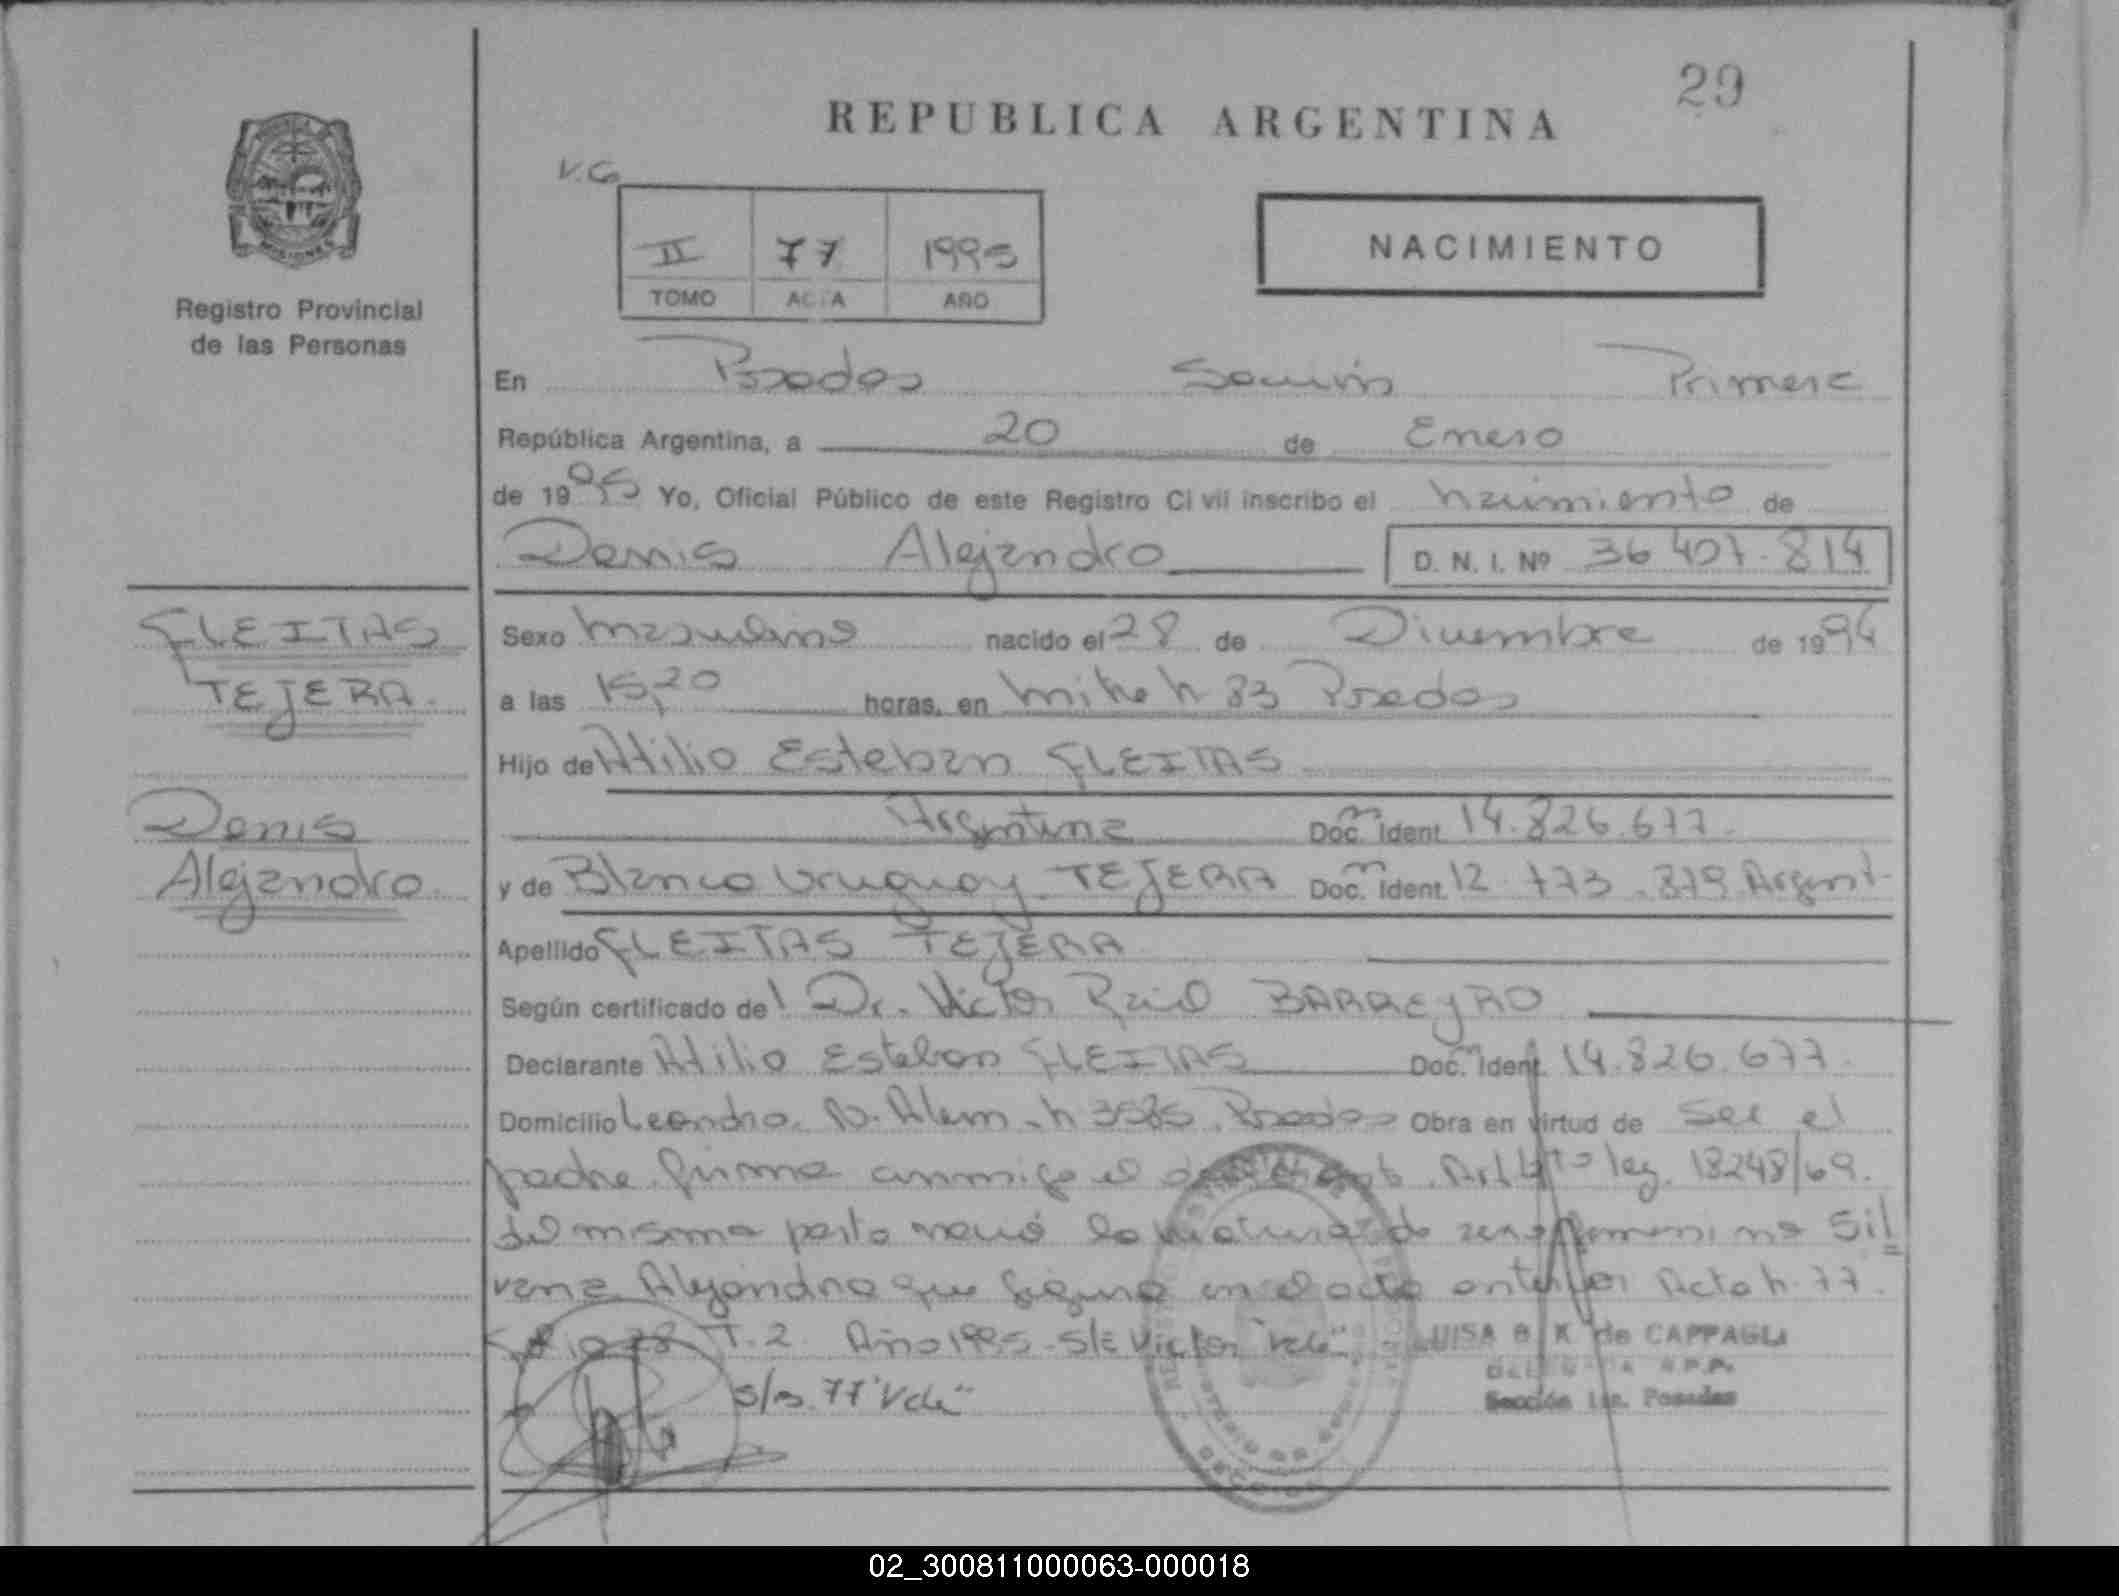 29
REPUBLICA ARGENTINA
V.G.
II 77 1995
TOMO ACTA AÑO
NACIMIENTO
Registro Provincial
de las Personas
En Posadas Sección Primera
República Argentina, a 20 de Enero
de 1995 Yo, Oficial Público de este Registro Civil inscribo el nacimiento de
Denis Alejandro D. N. I. Nº 36 407.814
FLEITAS
TEJERA.
Denis
Alejandro.
Sexo masculino nacido el 28 de Diciembre de 1994
a las 15,20 horas, en Mitre n 83 Posadas
Hijo de Atilio Esteban FLEITAS
Argentina Doc. Ident. 14.826.677.
y de Blanca Uruguay TEJERA Doc. Ident. 12.773.879 Argent.
Apellido FLEITAS TEJERA
Según certificado del Dr. Victor Raúl BARREYRO
Declarante Atilio Esteban FLEITAS Doc. Ident. 14.826.677.
Domicilio Leandro N. Alem n 3585. Posadas Obra en virtud de ser el
padre. firma conmigo el Art. ley. 18248/69.
del mismo parto nació la criatura de sexo femenino Sil
vana Alejandra que figura en el acta anterior Acta n. 77.
Folio 28 T. 2. Año 1995. S/E Victor "Vale"
S/B. 77 "Vale"
LUISA B K de CAPPAGLI
DELEGADA R.P.P.
Sección 1ra. Posadas
02_300811000063-000018